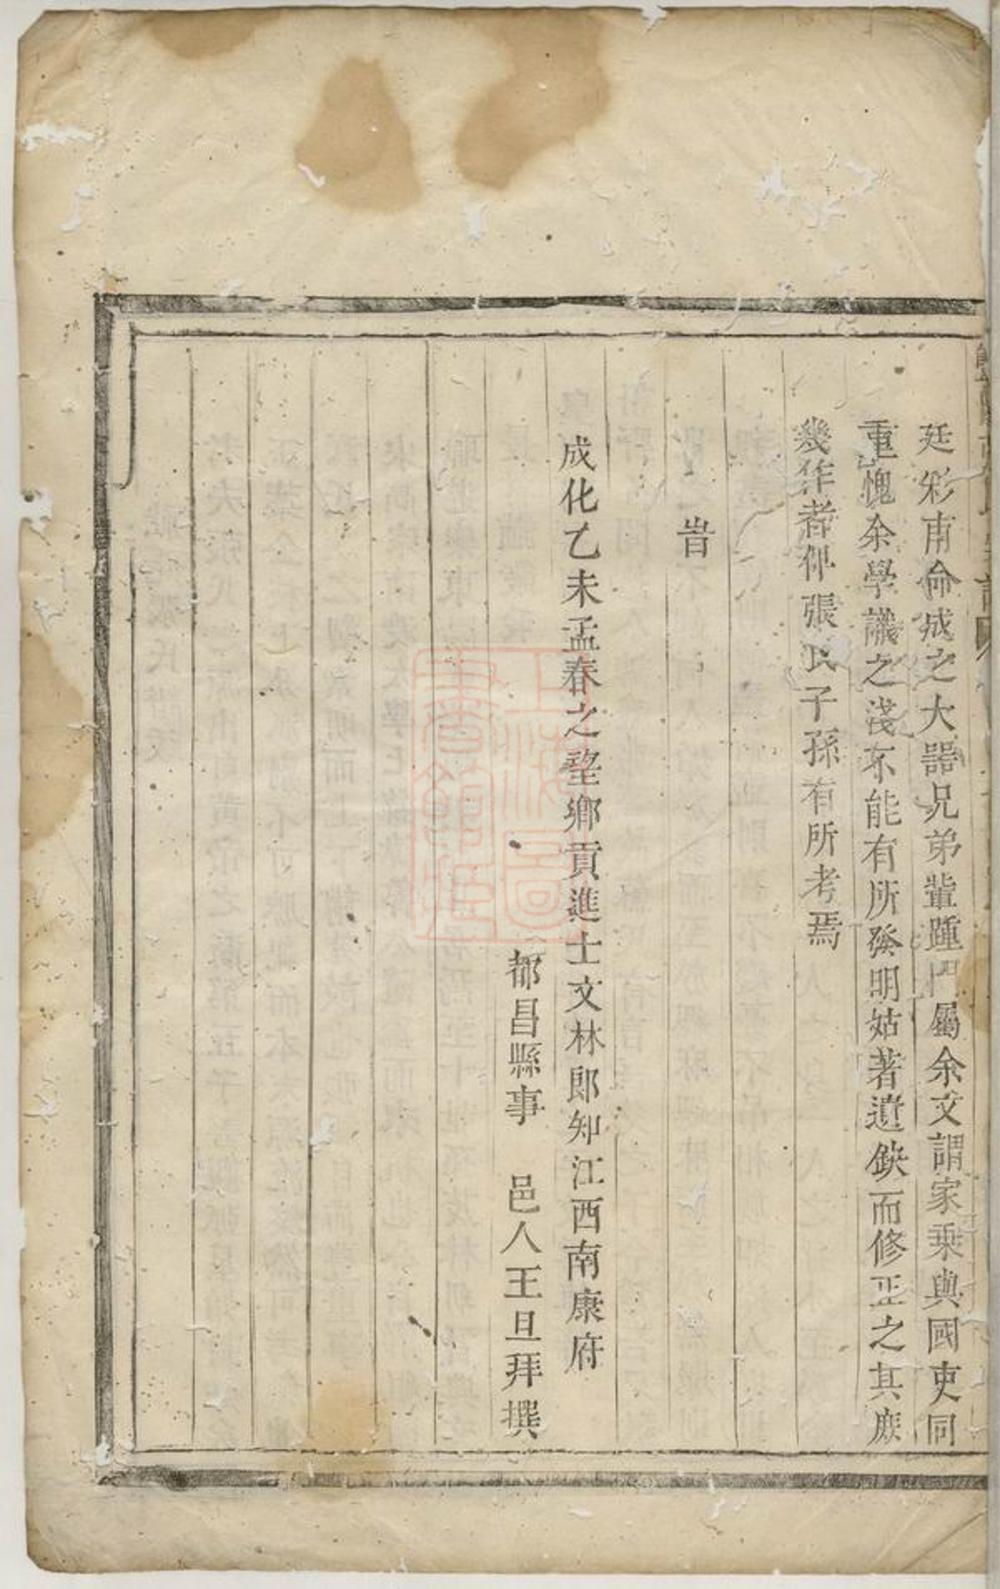 廷彩甫命成之大器兄弟輩踵門屬余文謂家乘與國史同
重愧余學譾之淺不能有所發明姑著遺鈌而修正之其庶
幾作者俾張氏子孫有所考焉
旹
成化乙未孟春之望鄉貢進士文林郎知江西南康府
都昌縣事　邑人王旦拜撰
上海圖書館藏